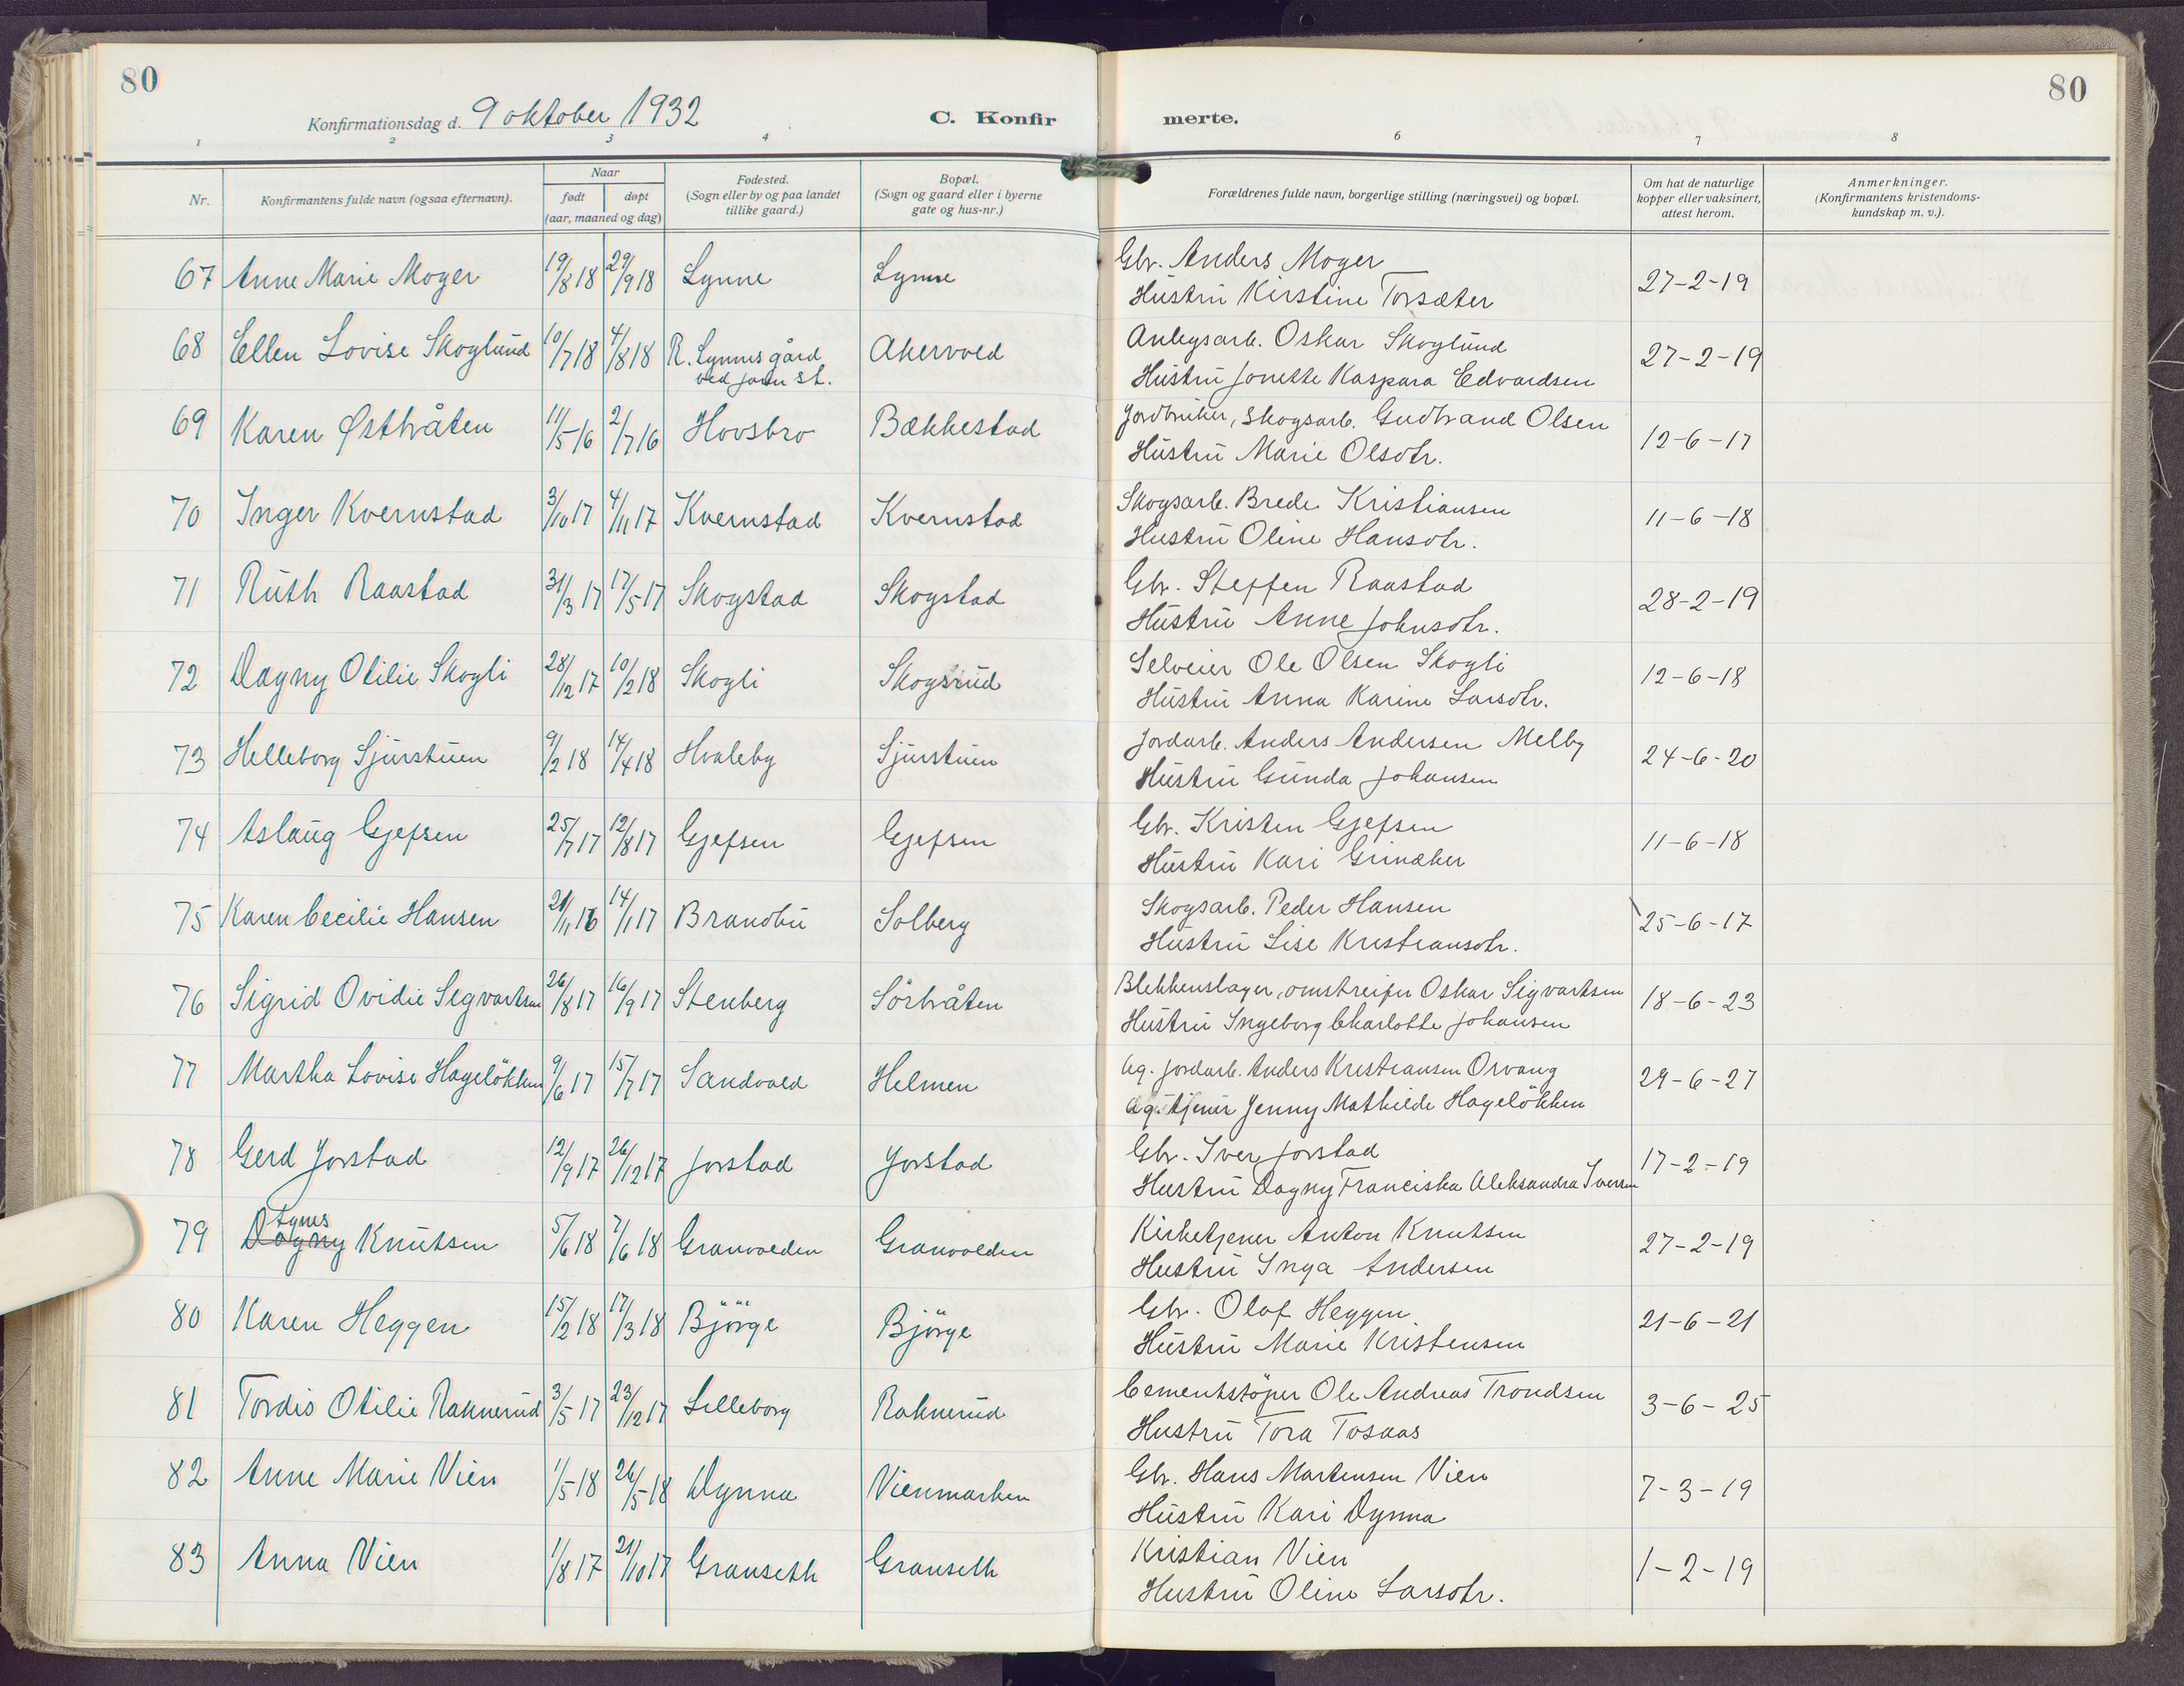 80
80
Konfirmationsdag d. 9 oktober 1932
C. Konfir
merte.
1 2 3 4 6 7 8
Nr.
Konfirmantens fulde navn (ogsaa efternavn).
Naar
født døpt
(aar, maaned og dag)
Fødested.
(Sogn eller by og paa landet
tillike gaard.)
Bopæl.
(Sogn og gaard eller i byerne
gate og hus-nr.)
Forældrenes fulde navn, borgerlige stilling (næringsvei) og bopæl.
Om hat de naturlige
kopper eller vaksinert,
attest herom.
Anmerkninger.
(Konfirmantens kristendoms-
kundskap m. v.).
67 Anne Marie Moger 19/8 18 29/9 18 Lynne Lynne Gbr. Anders Moger 27-2-19
Hustru Kirstine Torsæter
68 Ellen Lovise Skoglund 10/7 18 4/8 18 R. Lynnes gård Akervold Anlegsarb. Oskar Skoglund 27-2-19
ved Jaren st. Hustru Jonette Kaspara Edvardsen
69 Karen Østbråten 11/5-16 2/7 16 Hovsbro Bækkestad Jordbruker, skogsarb. Gudbrand Olsen 12-6-17
Hustru Marie Olsdtr.
70 Inger Kvernstad 3/10 17 4/11 17 Kvernstad Kvernstad Skogsarb. Brede Kristiansen 11-6-18
Hustru Oline Hansdtr.
71 Ruth Raastad 31/3 17 17/5 17 Skogstad Skogstad Gbr. Steffen Raastad 28-2-19
Hustru Anne Johnsdtr.
72 Dagny Otilie Skogli 28/12 17 10/2 18 Skogli Skogsrud Selveier Ole Olsen Skogli 12-6-18
Hustru Anna Karine Larsdtr.
73 Helleborg Sjurstuen 9/2 18 14/4 18 Hvaleby Sjurstuen Jordarb. Anders Andersen Melby 24-6-20
Hustru Gunda Johansen
74 Aslaug Gjefsen 25/7 17 12/8 17 Gjefsen Gjefsen Gbr. Kristen Gjefsen 11-6-18
Hustru Kari Grinaker
75 Karen Cecilie Hansen 21/11 16 14/1 17 Brandbu Solberg Skogsarb. Peder Hansen 25-6-17
Hustru Lise Kristiansdtr.
76 Sigrid Ovidie Sigvartsen 26/8 17 16/9 17 Stenberg Sörbråten Blekkenslager, omstreifer Oskar Sigvartsen 18-6-23
Hustru Ingeborg Charlotte Johansen
77 Martha Lovise Hagelökken 9/6 17 15/7 17 Sandvold Helmen ug. jordarb. Anders Kristiansen Orvang 29-6-27
ug. tjener Jenny Mathilde Hagelökken
78 Gerd Jorstad 12/9 17 26/12 17 Jorstad Jorstad Gbr. Iver Jorstad 17-2-19
Hustru Dagny Franciska Aleksandra Iversen
Agnes
79 Dagny Knutsen 5/6 18 7/6 18 Granvolden Granvolden Kirketjener Anton Knutsen 27-2-19
Hustru Inga Andersen
80 Karen Heggen 15/2 18 17/3 18 Björge Björge Gbr. Olaf Heggen 21-6-21
Hustru Marie Kristensen
81 Tordis Otilie Raknerud 3/5 17 23/12 17 Lilleborg Raknerud Cementstöper Ole Andreas Trondsen 3-6-25
Hustru Tora Tosaas
82 Anne Marie Vien 1/5-18 26/5-18 Dynna Vienmarken Gbr. Hans Martensen Vien 7-3-19
Hustru Kari Dynna
83 Anna Vien 1/8 17 21/10 17 Granseth Granseth Kristian Vien 1-2-19
Hustru Oline Larsdtr.